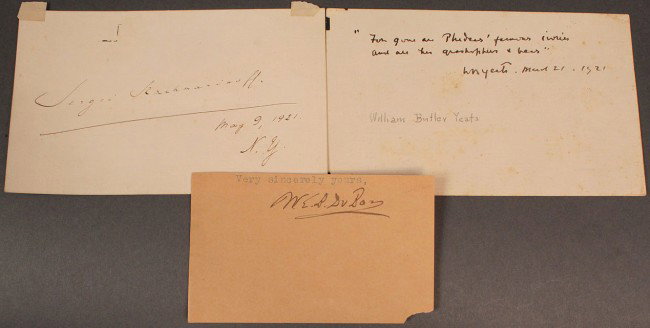 Sergei
May 9, 1921.
N. Y.
" gone are Phideas' famous ivories
and all his grasshoppers & bees"
WB Yeats. March 21. 1921
William Butler Yeats
Very sincerely yours,
W.E.B. Du Bois